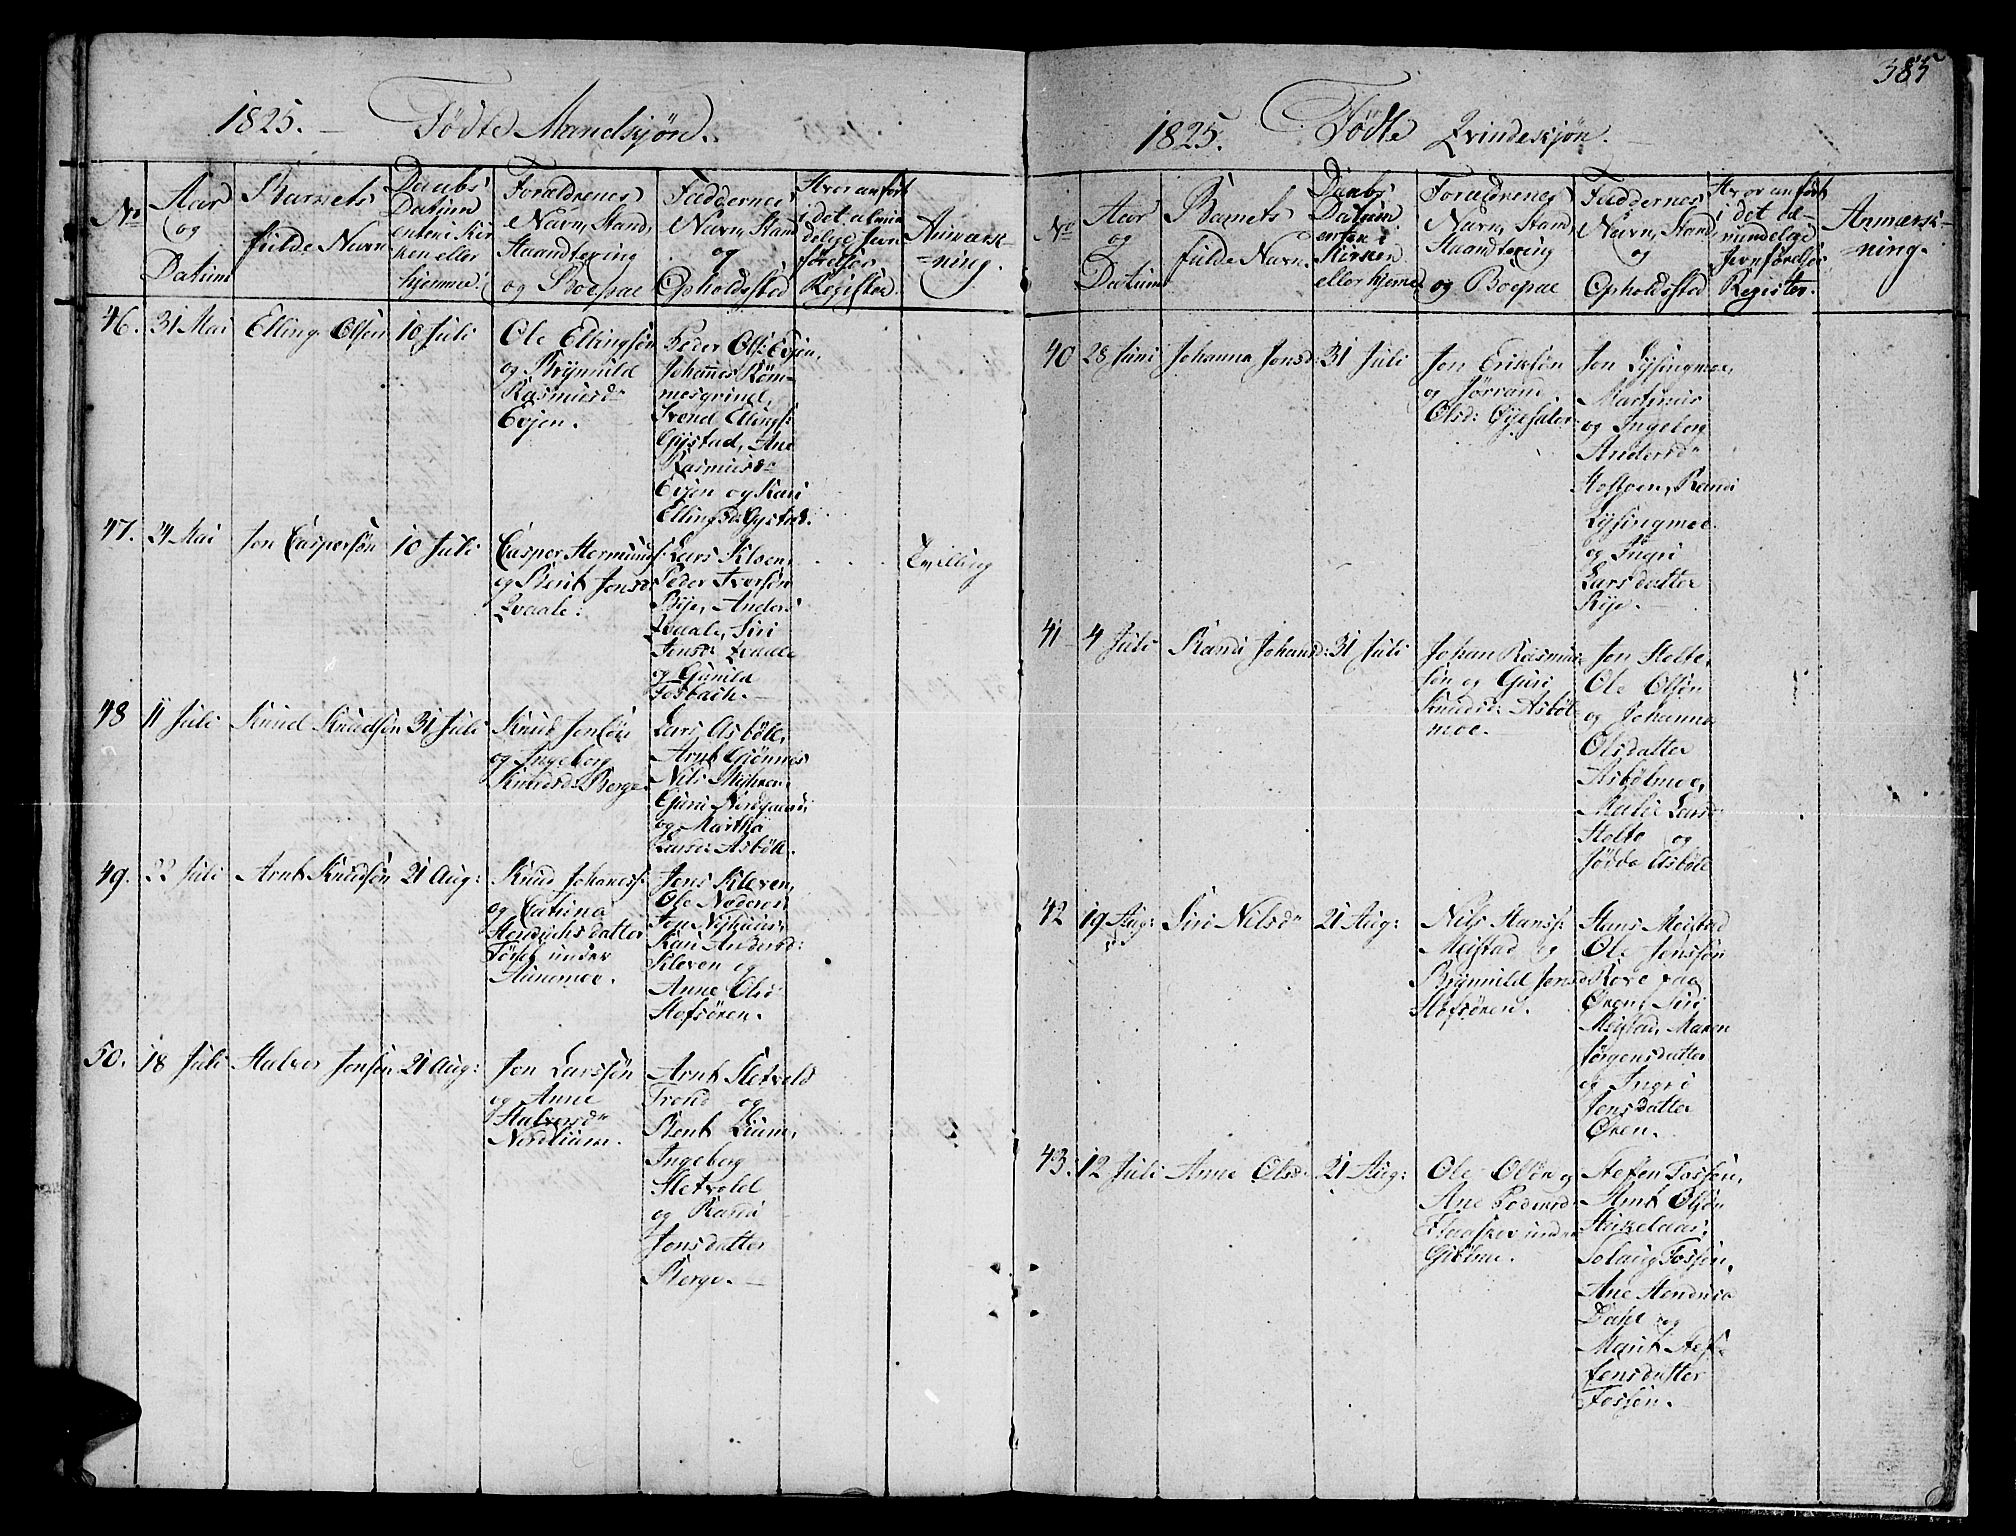 1825. – Födte Mandkjön.
No
Aar
og
Datum
Barnets
fulde Navn
Daabs
Datum
enten i Kir
ken eller
hjemme
Forældrenes
Navn, Stand,
Haandtering
og Boepæl
Faddernes
Navn, Stand
og
Opholdssted
Hvor anført
i det almin
delige Jevn
førelses
Register.
Anmærk-
ning.
46. 31 Mai Elling Olsön 10 Juli
Ole Ellingsön
og Brynild
Rasmusdr
Evjen.
Peder Ols: Evjen,
Johannes Röm-
mesgrind,
Svend Ellings:
Gystad, Ane
Rasmusdr
Evjen og Kari
Ellingsd: Gystad.
47. 24 Mai Jon Caspersön 10 Juli
Casper Hermunds:
og Berit Jonsd:
Qvaale.
Lars Kloen,
Peder Iversön
Bye, Anders
Qvaale, Siri
Jonsd: Qvaale
og Gunild
Fosbach.
Tvilling
48 11 Juli Knud Knudsön 31 Juli
Knud Jonsön
og Ingeberg
Knudsd: Berge.
Lars Asböll,
Arnt Grönnes
Nils
Guri
og Martha
Larsd: Asböll.
49. 22 Juli Arnt Knudsön 21 Aug:
Knud Johanss:
og Catrina
Hendrichsdatter
under
Hunemoe.
Jens Kleven,
Ole
Jon
Kari Andersd:
Kleven og
Anne Olsd
Hofsören.
50. 18 Juli Halvor Jonsön 21 Aug:
Jon Larssön
og Anne
Halvorsdr
Nordlium.
Arnt Sletvold
Trond og
Berit Lium,
Ingeberg
Sletvold
og Randi
Jonsdatter
Berge. –
385
1825. Födte Qvindekjön.
No
Aar
og
Datum
Barnets
fulde Navn.
Daabs
Datum
enten i
Kirken
eller hjeme
Forældrenes
Navn, Stand,
Haandtering
og Boepæl
Faddernes
Navn, Stand
og
Opholdssted
Hvor anført
i det al-
mindelige
Jevnførelses
Register.
Anmærk-
ning.
40 28 Juni Johanna Jonsd: 31 Juli
Jon Eriksön
og Jörrand
Olsd: Öyesæter
Jon Lysingmoe,
Martinus
og Ingeberg
Andersdr
Holtoen, Randi
Lysingmoe
og Ingri
Larsdatter
Rye. –
41 4 Juli Randi Johansd: 31 Juli
Johan Rasmus-
sön og Guri
Knudsd: Asböl
moe.
Jon Holte,
Ole Olsön
og Johanna
Olsdatter
Asbölmoe,
Malie Larsd
Holte og
Jödda Asböll
42 19 Aug: Siri Nilsdr 21 Aug:
Nils Hanss:
Meistad og
Brynnild Jonsd
Hofsören.
Hans Meistad
Ole Jonssön
og
Ören, Siri
Meistad, Maren
Jörgensdatter
og Ingri
Jensdatter
Ören.
43. 12 Juli Anne Olsd: 21 Aug:
Ole Olsön og
Ane Pedersd:
under
Stefen Fossön,
Arnt Olsön
Solaug Fossön,
Ane
Dahl og
Marit Stef-
fensdatter
Fossön.